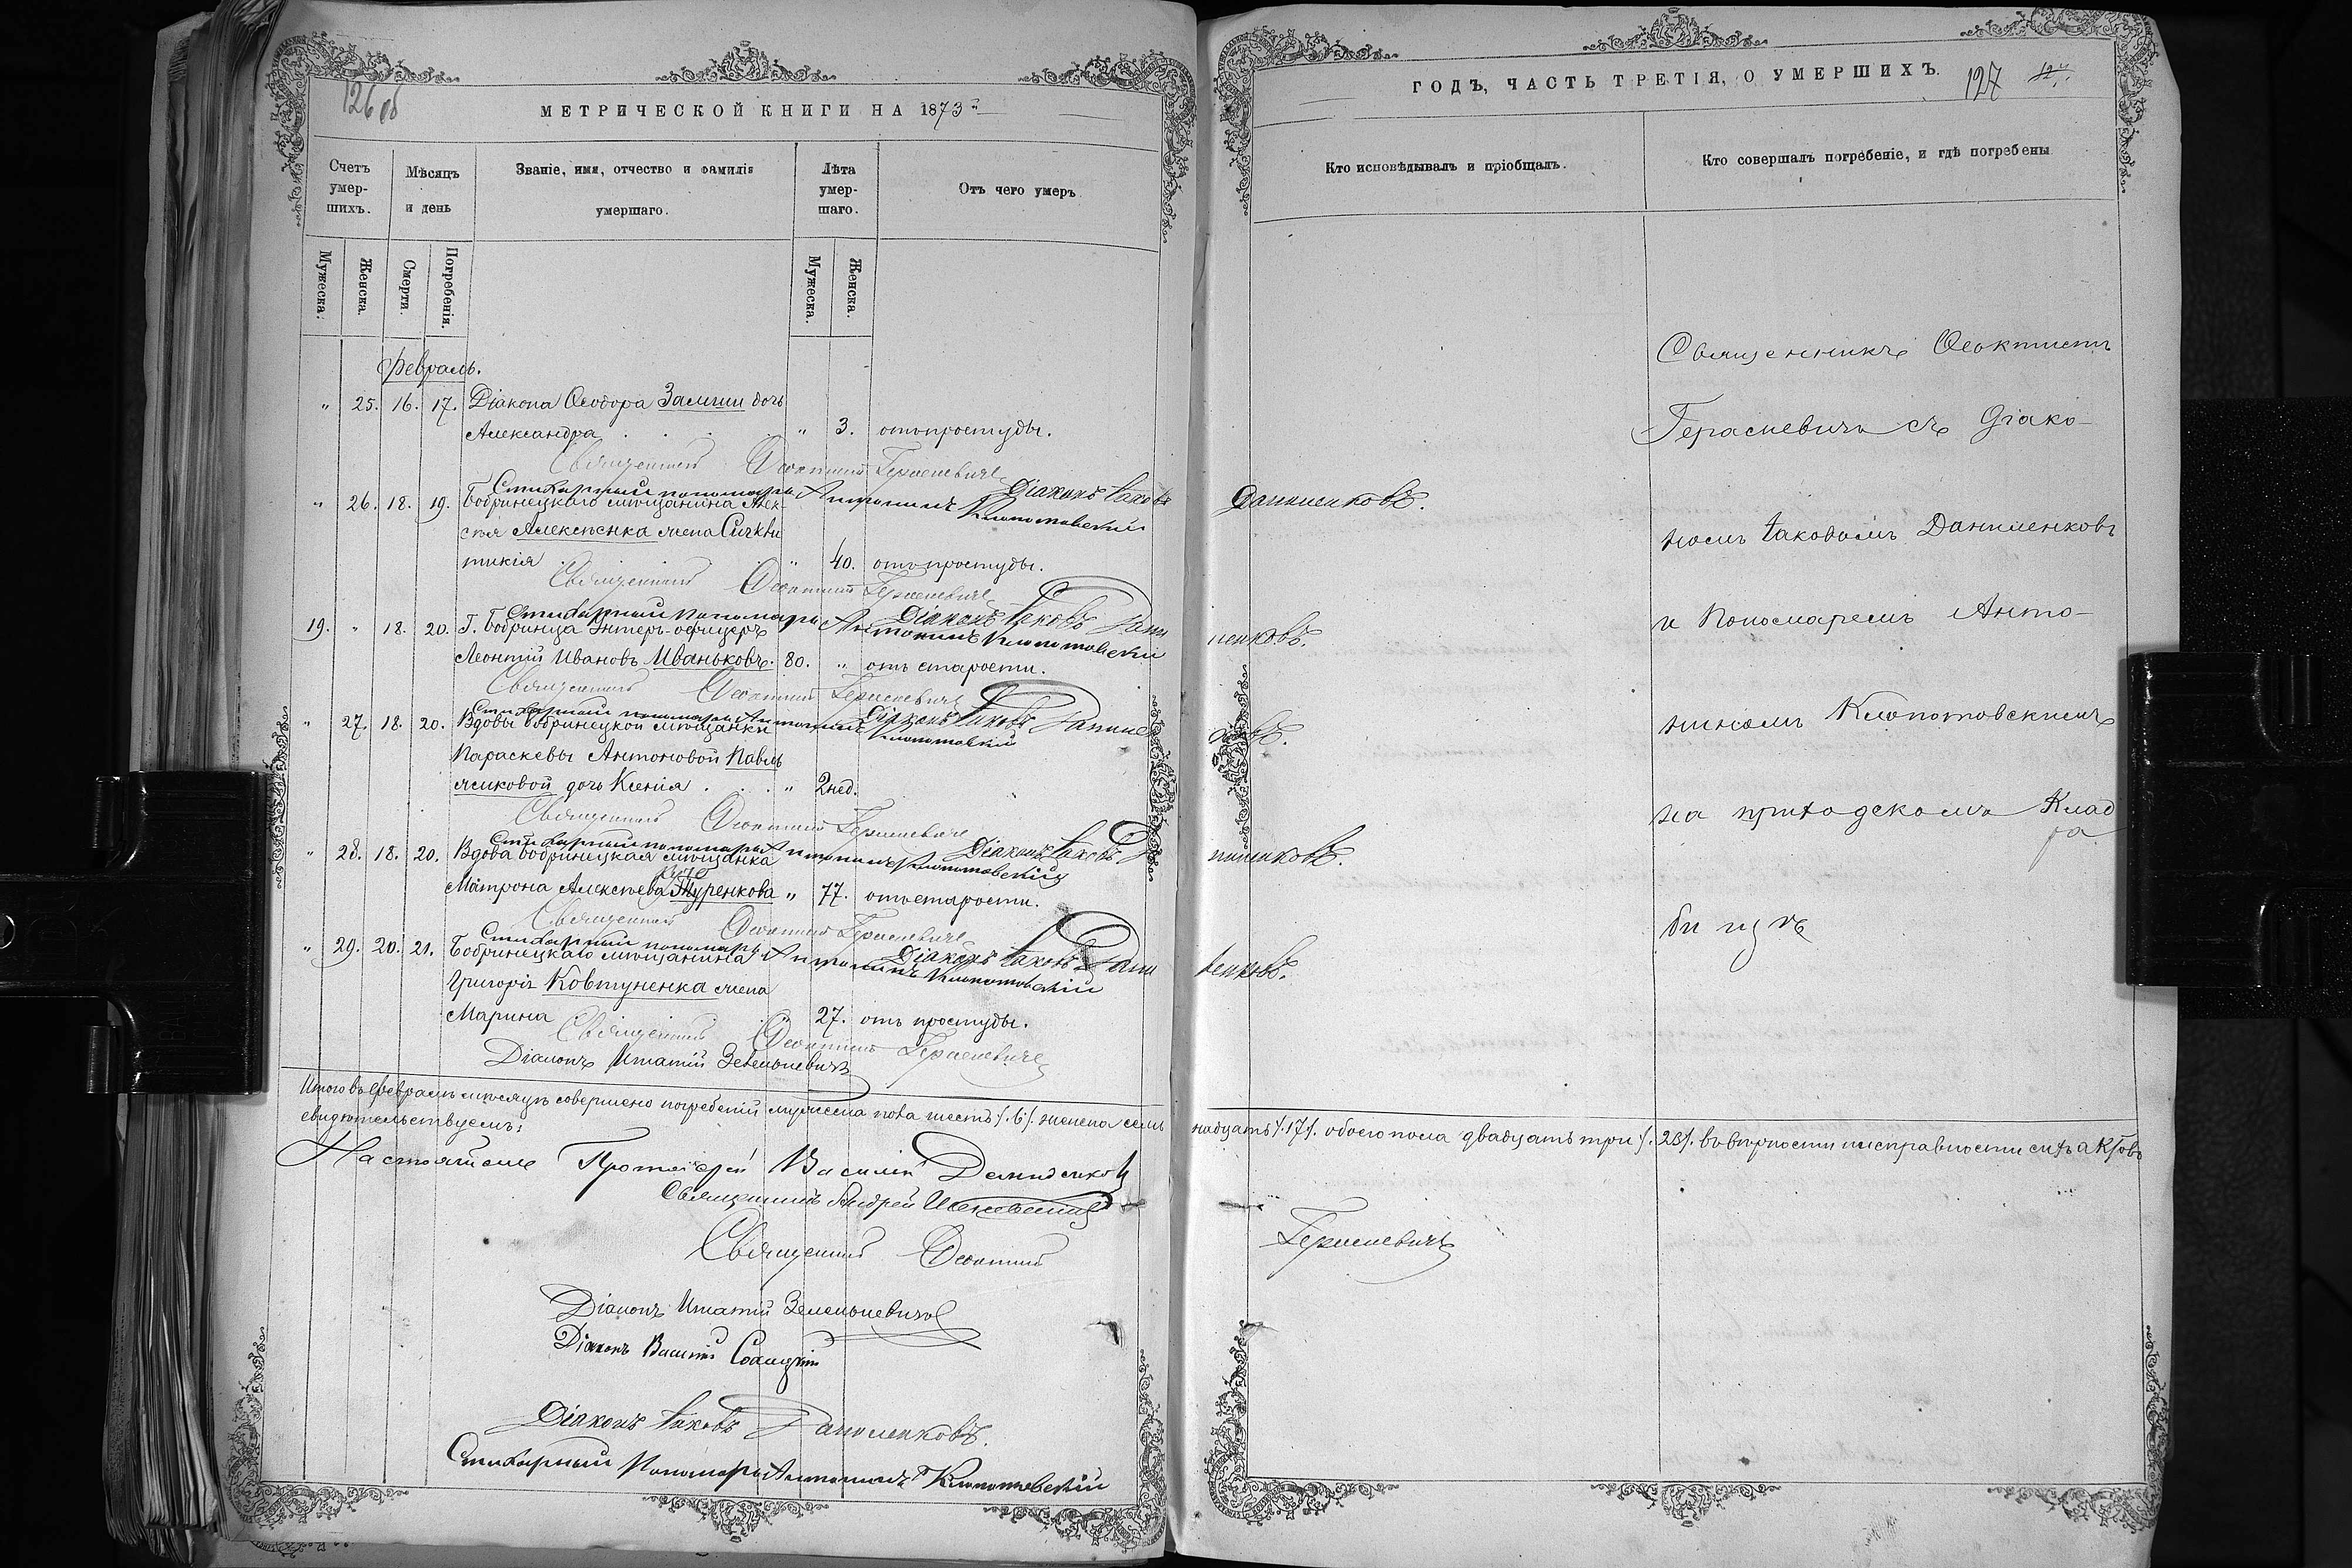 126 об
МЕТРИЧЕСКОЙ КНИГИ НА 1873
Счетъ умер-шихъ.
Мѣсяцъ и день
Званіе, имя, отчество и фамилія умершаго.
Лѣта умер-шаго.
Отъ чего умеръ
Мужеска.
Женска.
Смерти.
Погребенія.
Мужеска.
Женска.
Февраль.
" 25. 16. 17. Діакона Ѳеодора дочь
Александра " 3. отъ простуды.
Священникъ Ѳеоктистъ Герасневичъ
Стихарный пономарь Антонинъ Клопотовскій Діаконъ Іаковъ Даниленковъ.
" 26. 18. 19. Бобринецкаго мѣщанина Алек-
сѣя Алексѣенка жена
тикія " 40. отъ простуды.
Священникъ Ѳеоктистъ Герасневичъ
Стихарный пономарь Антонинъ Клопотовскій Діаконъ Іаковъ Даниленковъ.
19. " 18. 20. Г. Бобринца Унтеръ-офицеръ
Леонтій Ивановъ Иваньковъ. 80. " отъ старости.
Священникъ Ѳеоктистъ Герасневичъ
Стихарный пономарь Антонинъ Клопотовскій Діаконъ Іаковъ Даниленковъ.
" 27. 18. 20. Вдовы бобринецкой мѣщанки
Параскевы Антоновой Павль
яжковой дочь Ксенія " 2 нед.
Священникъ Ѳеоктистъ Герасневичъ
Стихарный пономарь Антонинъ Клопотовскій Діаконъ Іаковъ Даниленковъ.
" 28. 18. 20. Вдова бобринецкая мѣщанка
Матрона Алексѣева Туренкова " 77. отъ старости.
Священникъ Ѳеоктистъ Герасневичъ
Стихарный пономарь Антонинъ Клопотовскій Діаконъ Іаковъ Даниленковъ.
" 29. 20. 21. Бобринецкаго мѣщанина
Григорія Ковтуненка жена
Марина " 27. отъ простуды.
Священникъ Ѳеоктистъ Герасневичъ
Діаконъ Игнатій Зеленкевичъ
Итого въ Февралѣ мѣсяцѣ совершено погребеній мужеска пола шесть /.6/. женска сем
свидѣтельствуемъ:
Настоятель Протоіерей Василій Демиденков
Священникъ Андрей
Священникъ Ѳеоктистъ
Діаконъ Игнатій Зеленкевичъ
Діаконъ Василій
Діаконъ Іаковъ Даниленковъ.
Стихарный Пономарь Антонинъ Клопотовскій
ГОДЪ, ЧАСТЬ ТРЕТІЯ, О УМЕРШИХЪ.
127
Кто исповѣдывалъ и пріобщалъ.
Кто совершалъ погребеніе, и гдѣ погребены
Священникъ Ѳеоктистъ
Герасневичъ съ Діако-
номъ Іаковомъ Даниленковъ
и Пономаремъ Анто-
ниномъ Клопотовскимъ
на приходскомъ Клад
бищѣ
надцать /.17/. обоего пола двадцать три /.23/. въ вѣрности и исправности сихъ актовъ
Герасневичъ